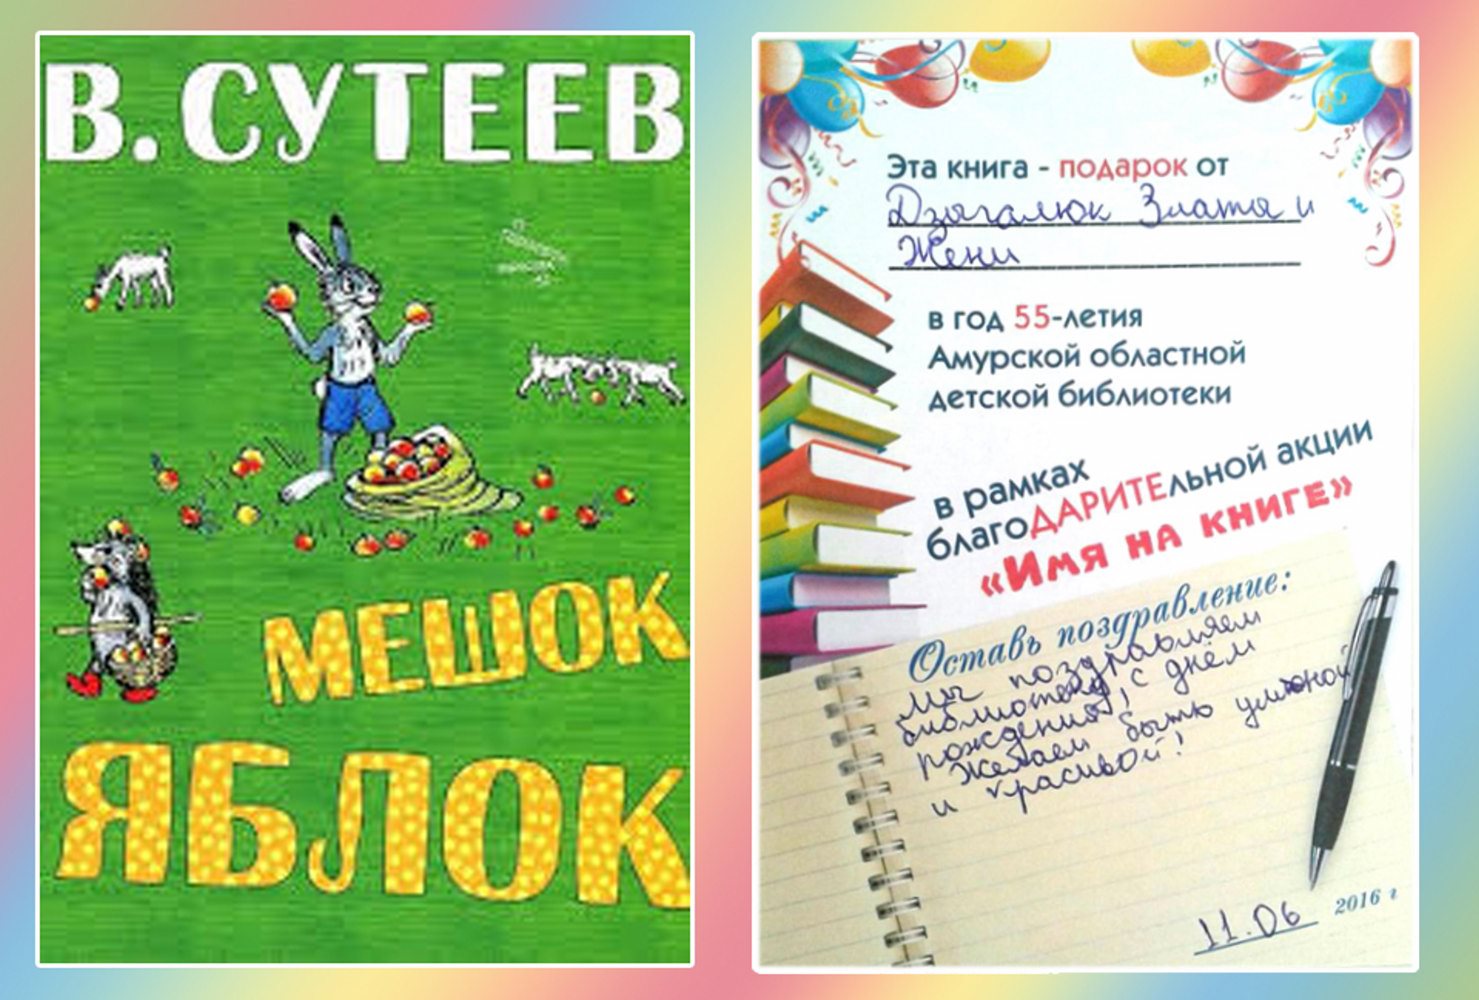 В. СУТЕЕВ
МЕШОК
ЯБЛОК
Эта книга - подарок от
Дзыгалюк Златы и
Жени
в год 55-летия
Амурской областной
детской библиотеки
в рамках
благоДАРИТЕльной акции
«Имя на книге»
Оставь поздравление:
Мы поздравляем
библиотеку с днём
рождения,
Желаем быть умной
и красивой!
11.06 2016 г